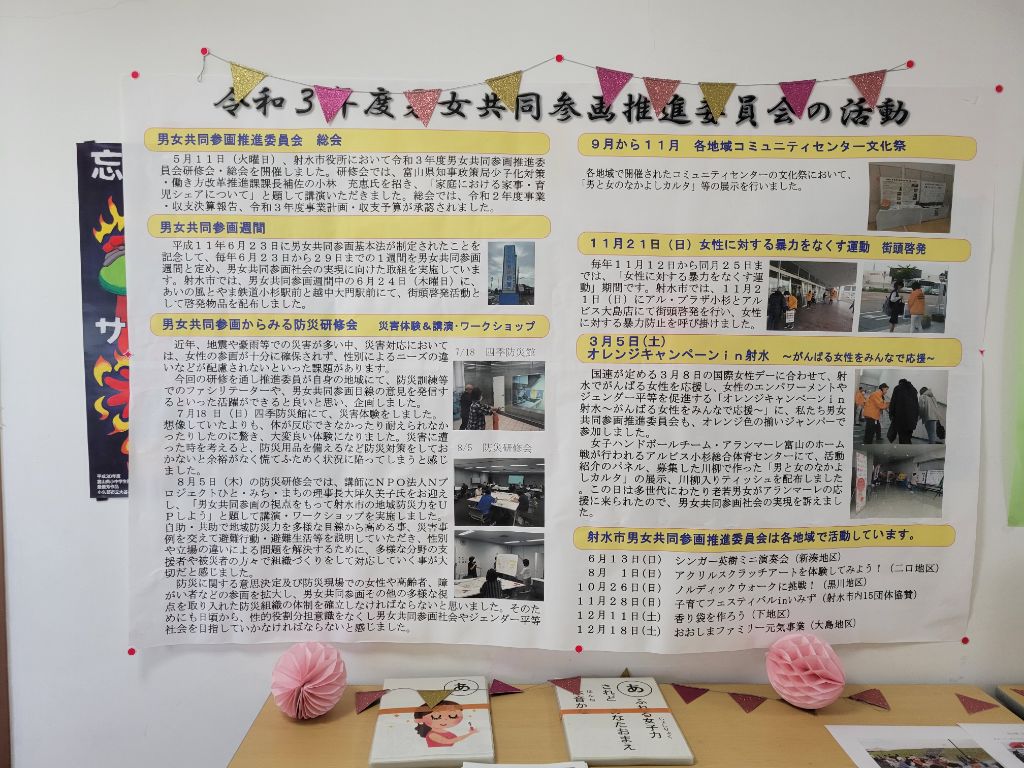 令和3年度男女共同参画推進委員会の活動
男女共同参画推進委員会 総会
5月11日(火曜日)、射水市役所において令和3年度男女共同参画推進委
員会研修会・総会を開催しました。研修会では、富山県知事政策局少子化対策
・働き方改革推進課課長補佐の小林 充恵氏を招き、「家庭における家事・育
児シェアについて」と題して講演いただきました。総会では、令和2年度事業
・収支決算報告、令和3年度事業計画・収支予算が承認されました。
男女共同参画週間
平成11年6月23日に男女共同参画基本法が制定されたことを
記念して、毎年6月23日から29日までの1週間を男女共同参画
週間と定め、男女共同参画社会の実現に向けた取組を実施していま
す。射水市では、男女共同参画週間中の6月24日(木曜日)に、
あいの風とやま鉄道小杉駅前と越中大門駅前にて、街頭啓発活動と
して啓発物品を配布しました。
男女共同参画からみる防災研修会 災害体験&講演・ワークショップ
近年、地震や豪雨等での災害が多い中、災害対応におい
ては、女性の参画が十分に確保されず、性別によるニーズの違
いなどが配慮されないといった課題があります。
今回の研修を通し推進委員が自身の地域にて、防災訓練等
でのファシリテーターや、男女共同参画目線の意見を発信す
るといった活躍ができると良いと思い、企画しました。
7月18日(日)四季防災館にて、災害体験をしました。
想像していたよりも、体が反応できなかったり耐えられなか
ったりしたのに驚き、大変良い体験になりました。災害に遭
った時を考えると、防災用品を備えるなど防災対策をしてお
かないと余裕がなく慌てふためく状況に陥ってしまうと感じ
ました。
8月5日(木)の防災研修会では、講師にNPO法人Nプ
ロジェクトひと・みち・まちの理事長大坪久美子氏をお迎え
し、「男女共同参画の視点をもって射水市の地域防災力をU
Pしよう」と題して講演・ワークショップを実施しました。
自助・共助で地域防災力を多様な目線から高める事、災害事
例を交えて避難行動・避難生活等を説明していただき、性別
や立場の違いによる問題を解決するために、多様な分野の支
援者や被災者の方々で組織づくりをして対応していく事が大
切だと感じました。
防災に関する意思決定及び防災現場での女性や高齢者、障
がい者などの参画を拡大し、男女共同参画その他の多様な視
点を取り入れた防災組織の体制を確立しなければならないと思いました。そのた
めにも日頃から、性的役割分担意識をなくし男女共同参画社会やジェンダー平等
社会を目指していかなければならないと感じました。
7/18 四季防災館
8/5 防災研修会
9月から11月 各地域コミュニティセンター文化祭
各地域で開催されたコミュニティセンターの文化祭において、
「男と女のなかよしカルタ」等の展示を行いました。
11月21日(日)女性に対する暴力をなくす運動 街頭啓発
毎年11月12日から同月25日ま
では、「女性に対する暴力をなくす運
動」期間です。射水市では、11月2
1日(日)にアル・プラザ小杉とアル
ビス大島店にて街頭啓発を行い、女性
に対する暴力防止を呼び掛けました。
3月5日(土)
オレンジキャンペーンin射水 ~がんばる女性をみんなで応援~
国連が定める3月8日の国際女性デーに合わせて、射
水でがんばる女性を応援し、女性のエンパワーメントや
ジェンダー平等を促進する「オレンジキャンペーンin
射水~がんばる女性をみんなで応援~」に、私たち男女
共同参画推進委員会も、オレンジ色の揃いジャンパーで
参加しました。
女子ハンドボールチーム・アランマーレ富山のホーム
戦が行われるアルビス小杉総合体育センターにて、活動
紹介のパネル、募集した川柳で作った「男と女のなかよ
しカルタ」の展示、川柳入りティッシュを配布しました
。この日は多世代にわたり老若男女がアランマーレの応
援に来られたので、男女共同参画社会の実現を訴えまし
た。
射水市男女共同参画推進委員会は各地域で活動しています。
6月13日(日) シンガー英樹ミニ演奏会(新湊地区)
8月 1日(日) アクリルスクラッチアートを体験してみよう!(二口地区)
10月26日(日) ノルディックウォークに挑戦!(黒川地区)
11月28日(日) 子育てフェスティバルinいみず(射水市内15団体協賛)
12月11日(土) 香り袋を作ろう(下地区)
12月18日(土) おおしまファミリー元気事業(大島地区)
忘
サ
あ
あ
ふれる女子力